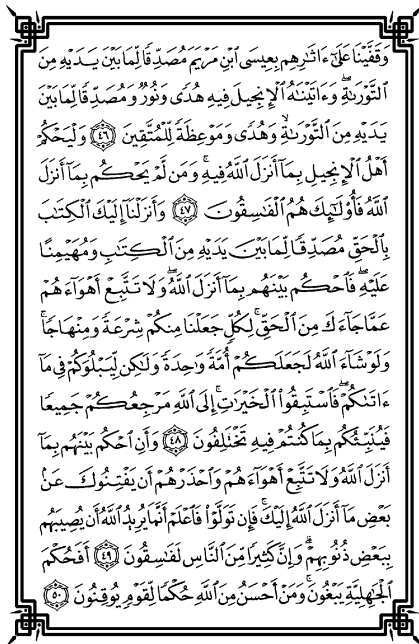 وَقَفَّيۡنَا عَلَىٰٓ ءَاثَٰرِهِم بِعِيسَى ٱبۡنِ مَرۡيَمَ مُصَدِّقٗا لِّمَا بَيۡنَ يَدَيۡهِ مِنَ
ٱلتَّوۡرَىٰةِۖ وَءَاتَيۡنَٰهُ ٱلۡإِنجِيلَ فِيهِ هُدٗى وَنُورٞ وَمُصَدِّقٗا لِّمَا بَيۡنَ
يَدَيۡهِ مِنَ ٱلتَّوۡرَىٰةِ وَهُدٗى وَمَوۡعِظَةٗ لِّلۡمُتَّقِينَ ٤٦ وَلۡيَحۡكُمۡ
أَهۡلُ ٱلۡإِنجِيلِ بِمَآ أَنزَلَ ٱللَّهُ فِيهِۚ وَمَن لَّمۡ يَحۡكُم بِمَآ أَنزَلَ
ٱللَّهُ فَأُوْلَٰٓئِكَ هُمُ ٱلۡفَٰسِقُونَ ٤٧ وَأَنزَلۡنَآ إِلَيۡكَ ٱلۡكِتَٰبَ
بِٱلۡحَقِّ مُصَدِّقٗا لِّمَا بَيۡنَ يَدَيۡهِ مِنَ ٱلۡكِتَٰبِ وَمُهَيۡمِنًا
عَلَيۡهِۖ فَٱحۡكُم بَيۡنَهُم بِمَآ أَنزَلَ ٱللَّهُۖ وَلَا تَتَّبِعۡ أَهۡوَآءَهُمۡ
عَمَّا جَآءَكَ مِنَ ٱلۡحَقِّۚ لِكُلّٖ جَعَلۡنَا مِنكُمۡ شِرۡعَةٗ وَمِنۡهَاجٗاۚ
وَلَوۡ شَآءَ ٱللَّهُ لَجَعَلَكُمۡ أُمَّةٗ وَٰحِدَةٗ وَلَٰكِن لِّيَبۡلُوَكُمۡ فِي مَآ
ءَاتَىٰكُمۡۖ فَٱسۡتَبِقُواْ ٱلۡخَيۡرَٰتِۚ إِلَى ٱللَّهِ مَرۡجِعُكُمۡ جَمِيعٗا
فَيُنَبِّئُكُم بِمَا كُنتُمۡ فِيهِ تَخۡتَلِفُونَ ٤٨ وَأَنِ ٱحۡكُم بَيۡنَهُم بِمَآ
أَنزَلَ ٱللَّهُ وَلَا تَتَّبِعۡ أَهۡوَآءَهُمۡ وَٱحۡذَرۡهُمۡ أَن يَفۡتِنُوكَ عَنۢ
بَعۡضِ مَآ أَنزَلَ ٱللَّهُ إِلَيۡكَۖ فَإِن تَوَلَّوۡاْ فَٱعۡلَمۡ أَنَّمَا يُرِيدُ ٱللَّهُ أَن يُصِيبَهُم
بِبَعۡضِ ذُنُوبِهِمۡۗ وَإِنَّ كَثِيرٗا مِّنَ ٱلنَّاسِ لَفَٰسِقُونَ ٤٩ أَفَحُكۡمَ
ٱلۡجَٰهِلِيَّةِ يَبۡغُونَۚ وَمَنۡ أَحۡسَنُ مِنَ ٱللَّهِ حُكۡمٗا لِّقَوۡمٖ يُوقِنُونَ ٥٠